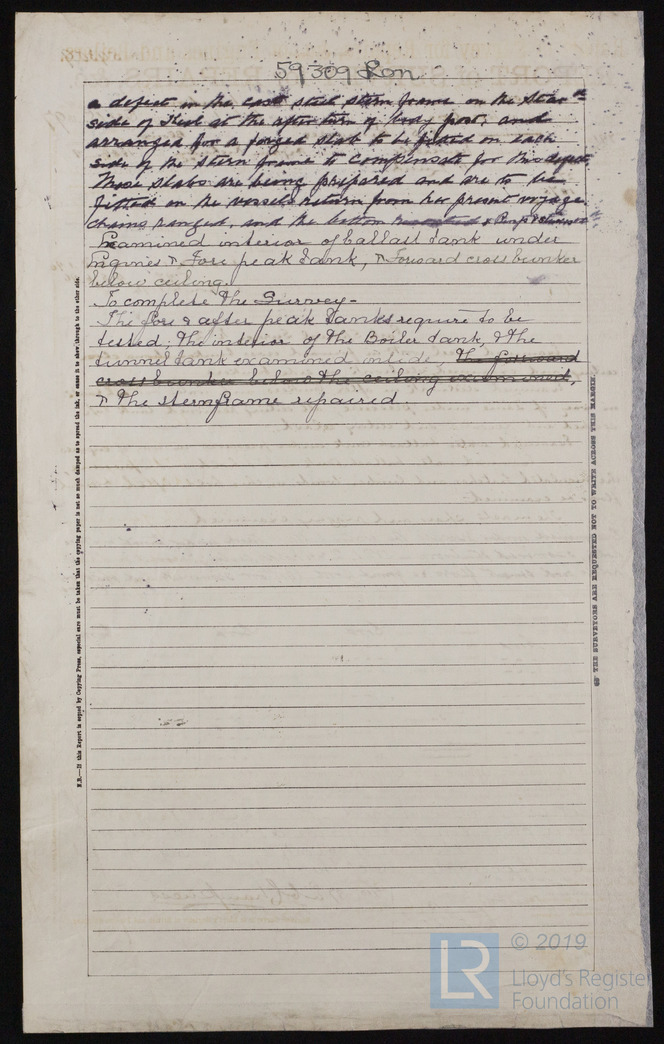 59309 Lon
a defect in the cast steel stern frame on the Star
side of Keel at the after turn of body post, and
arranged for a forged slab to be fitted on each
side of the stern frame to compensate for this defect
These slabs are being prepared and are to be
fitted on the vessel's return from her present voyage.
Chains ranged, and the bottom
Examined interior of ballast tank under
Engines & Fore peak tank, & Forward cross bunker
below ceiling.
To complete the Survey-
The fore & after peak tanks require to be
tested, the interior of the Boiler tank, & the
tunnel tank examined inside, the forward
cross bunker below the ceiling examined,
& the sternframe repaired.
N.B.—If this Report is copied by Copying Press, especial care must be taken that the copying paper is not so much damped as to spread the ink, or cause it to show through to the other side.
THE SURVEYORS ARE REQUESTED NOT TO WRITE ACROSS THIS MARGIN.
LR
© 2019
Lloyd's Register
Foundation